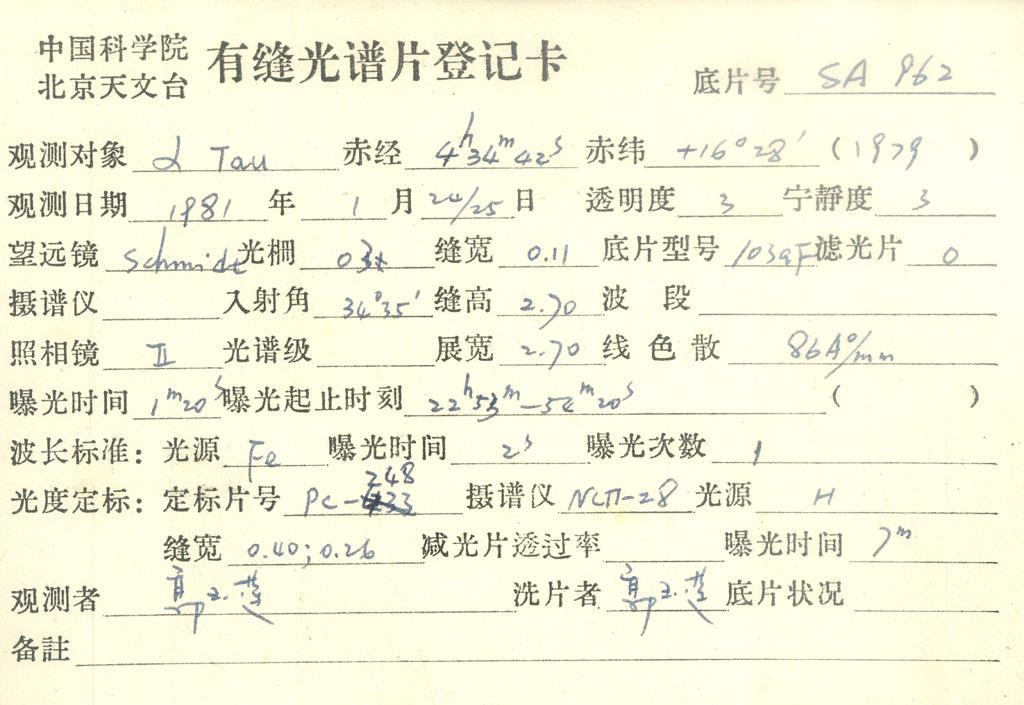 中国科学院
北京天文台
有缝光谱片登记卡
底片号 SA 962
观测对象 α Tau 赤经 4h34m42s 赤纬 +16°28′ (1979)
观测日期 1981 年 1 月 24/25 日 透明度 3 宁静度 3
望远镜 Schmidt 光栅 03t 缝宽 0.11 底片型号 103aF 滤光片 0
摄谱仪 入射角 34°35′ 缝高 2.70 波段
照相镜 II 光谱级 展宽 2.70 线色散 86A°/mm
曝光时间 1m20s 曝光起止时刻 22h53m—54m20s ( )
波长标准: 光源 Fe 曝光时间 2s 曝光次数 1
光度定标: 定标片号 PC-248 摄谱仪 ИСП-28 光源 H
缝宽 0.40; 0.26 减光片透过率 曝光时间 7m
观测者 洗片者 底片状况
备註